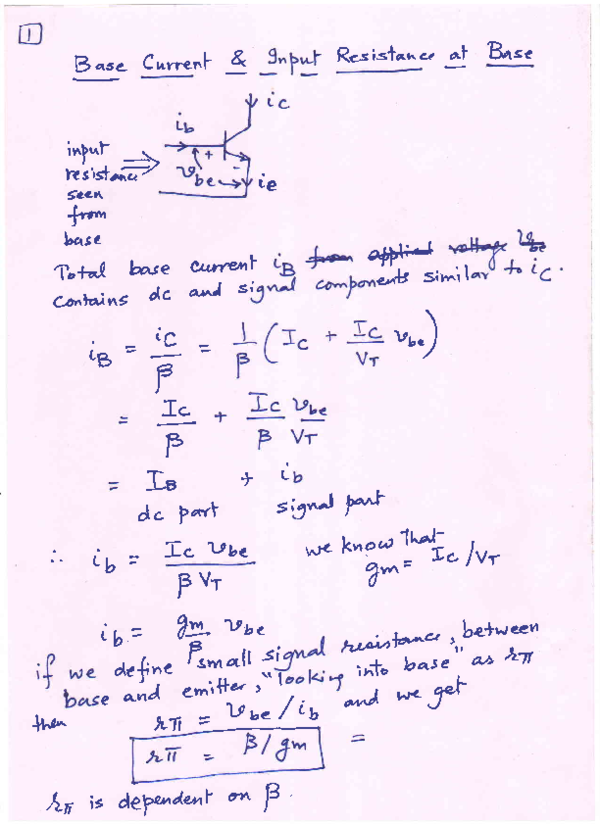 1
Base Current & Input Resistance at Base
ic
ib
input
resistance
seen
from
base
+
-
vbe
ie
Total base current iB from applied voltage vbe
contains dc and signal components similar to iC.
iB = iC/β = 1/β (IC + IC/VT vbe)
= IC/β + IC/β vbe/VT
= IB + ib
dc part signal part
∴ ib = IC vbe / β VT we know that
gm = IC/VT
ib = gm/β vbe
if we define small signal resistance, between
base and emitter, "looking into base" as rπ
then rπ = vbe/ib and we get
rπ = β/gm =
rπ is dependent on β.